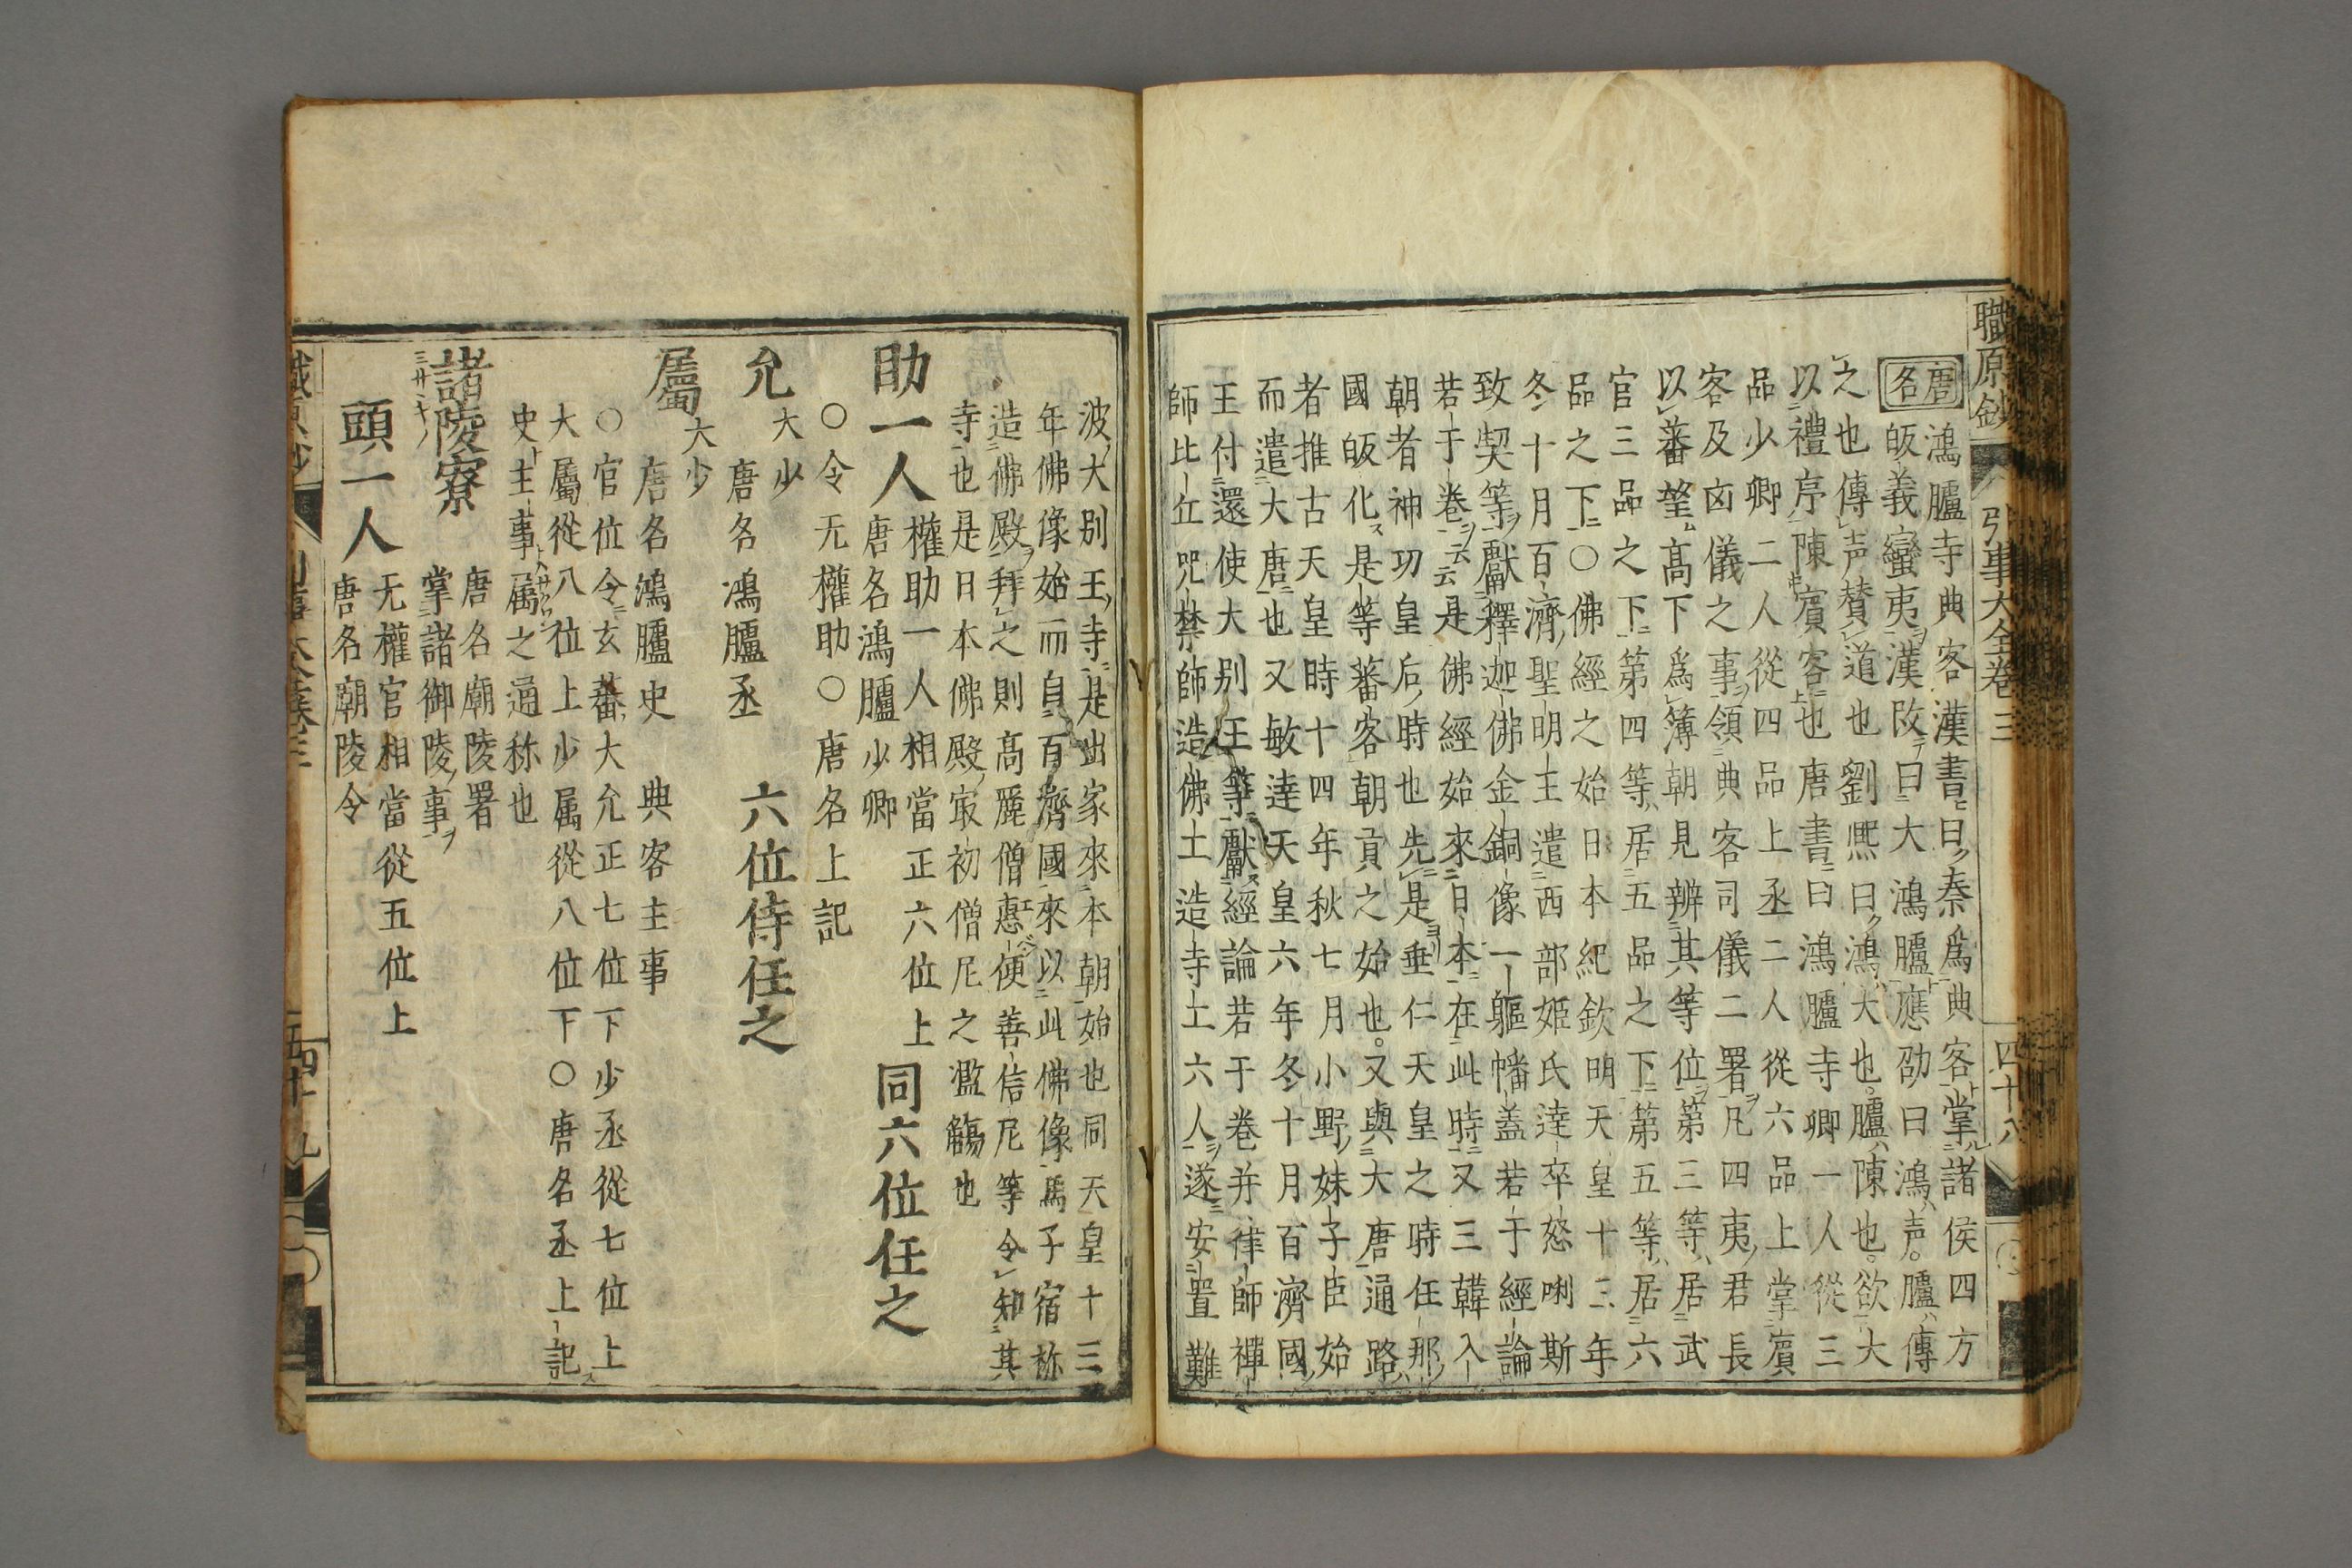 職原鈔 引事大全卷三 四十八
唐名 鴻臚寺典客漢書曰秦爲典客掌諸侯四方
皈義蠻夷漢改曰大鴻臚應劭曰鴻声臚傳
之也傳声賛道也劉熈曰鴻大也臚陳也欲大
以禮序陳賓客也唐書曰鴻臚寺卿一人從三
品少卿二人從四品上丞二人從六品上掌賓
客及凶儀之事領典客司儀二署凡四夷君長
以蕃望高下爲簿朝見辨其等位第三等居武
官三品之下第四等居五品之下第五等居六
品之下〇佛經之始日本紀欽明天皇十三年
冬十月百濟聖明王遣西部姬氏達卒怒唎斯
致契等獻釋迦佛金銅像一軀幡盖若于經論
若于卷云云是佛經始來日本在此時又三韓入
朝者神功皇后時也先是垂仁天皇之時任那
國皈化是等蕃客朝貢之始也又與大唐通路
者推古天皇時十四年秋七月小野妹子臣始
而遣大唐也又敏達天皇六年冬十月百濟國
王付還使大别王等獻經論若于卷并律師禪
師比丘咒禁師造佛土造寺土六人遂安置難
波大别王寺是出家來本朝始也同天皇十三
年佛像始而自百濟國來以此佛像馬子宿祢
造佛殿拜之則高麗僧惠便善信尼等令知其
寺也是日本佛殿冣初僧尼之濫觴也
助一人 權助一人相當正六位上 同六位任之
唐名鴻臚少卿
〇令无權助〇唐名上記
允 大少 六位侍任之
唐名鴻臚丞
屬 大少
唐名鴻臚史 典客主事
〇官位令玄蕃大允正七位下少丞從七位上
大屬從八位上少属從八位下〇唐名丞上記
史主事属之通称也
諸陵寮 唐名廟陵署
掌諸御陵事
頭一人 无權官相當從五位上
唐名廟陵令